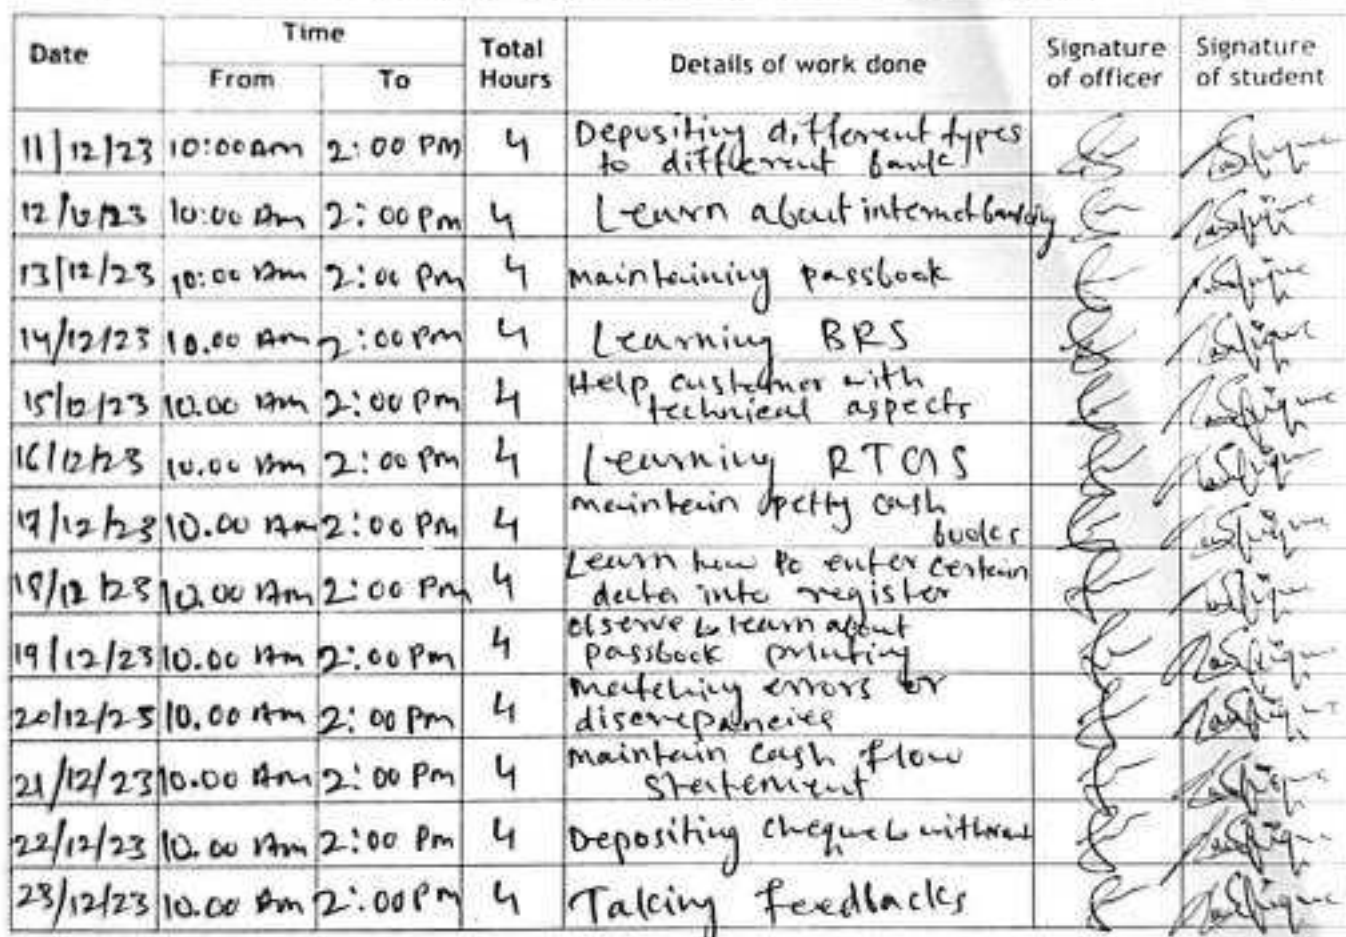 Date Time Total Hours Details of work done Signature of officer Signature of student
From To
11/12/23 10:00 Am 2:00 PM 4 Depositing different types
to different bank
12/12/23 10:00 Am 2:00 Pm 4 Learn about internet banking
13/12/23 10:00 Am 2:00 Pm 4 maintaining passbook
14/12/23 10.00 Am 2:00 Pm 4 Learning BRS
15/12/23 10.00 Am 2:00 Pm 4 Help customer with
technical aspects
16/12/23 10.00 Am 2:00 Pm 4 Learning RTGS
17/12/23 10.00 Am 2:00 Pm 4 maintain petty cash
books
18/12/23 10.00 Am 2:00 Pm 4 Learn how to enter certain
data into register
19/12/23 10.00 Am 2:00 Pm 4 observe & learn about
passbook printing
20/12/23 10.00 Am 2:00 Pm 4 matching errors or
discrepancies
21/12/23 10.00 Am 2:00 Pm 4 maintain cash flow
statement
22/12/23 10.00 Am 2:00 Pm 4 Depositing cheque &
23/12/23 10.00 Am 2:00 Pm 4 Taking feedbacks